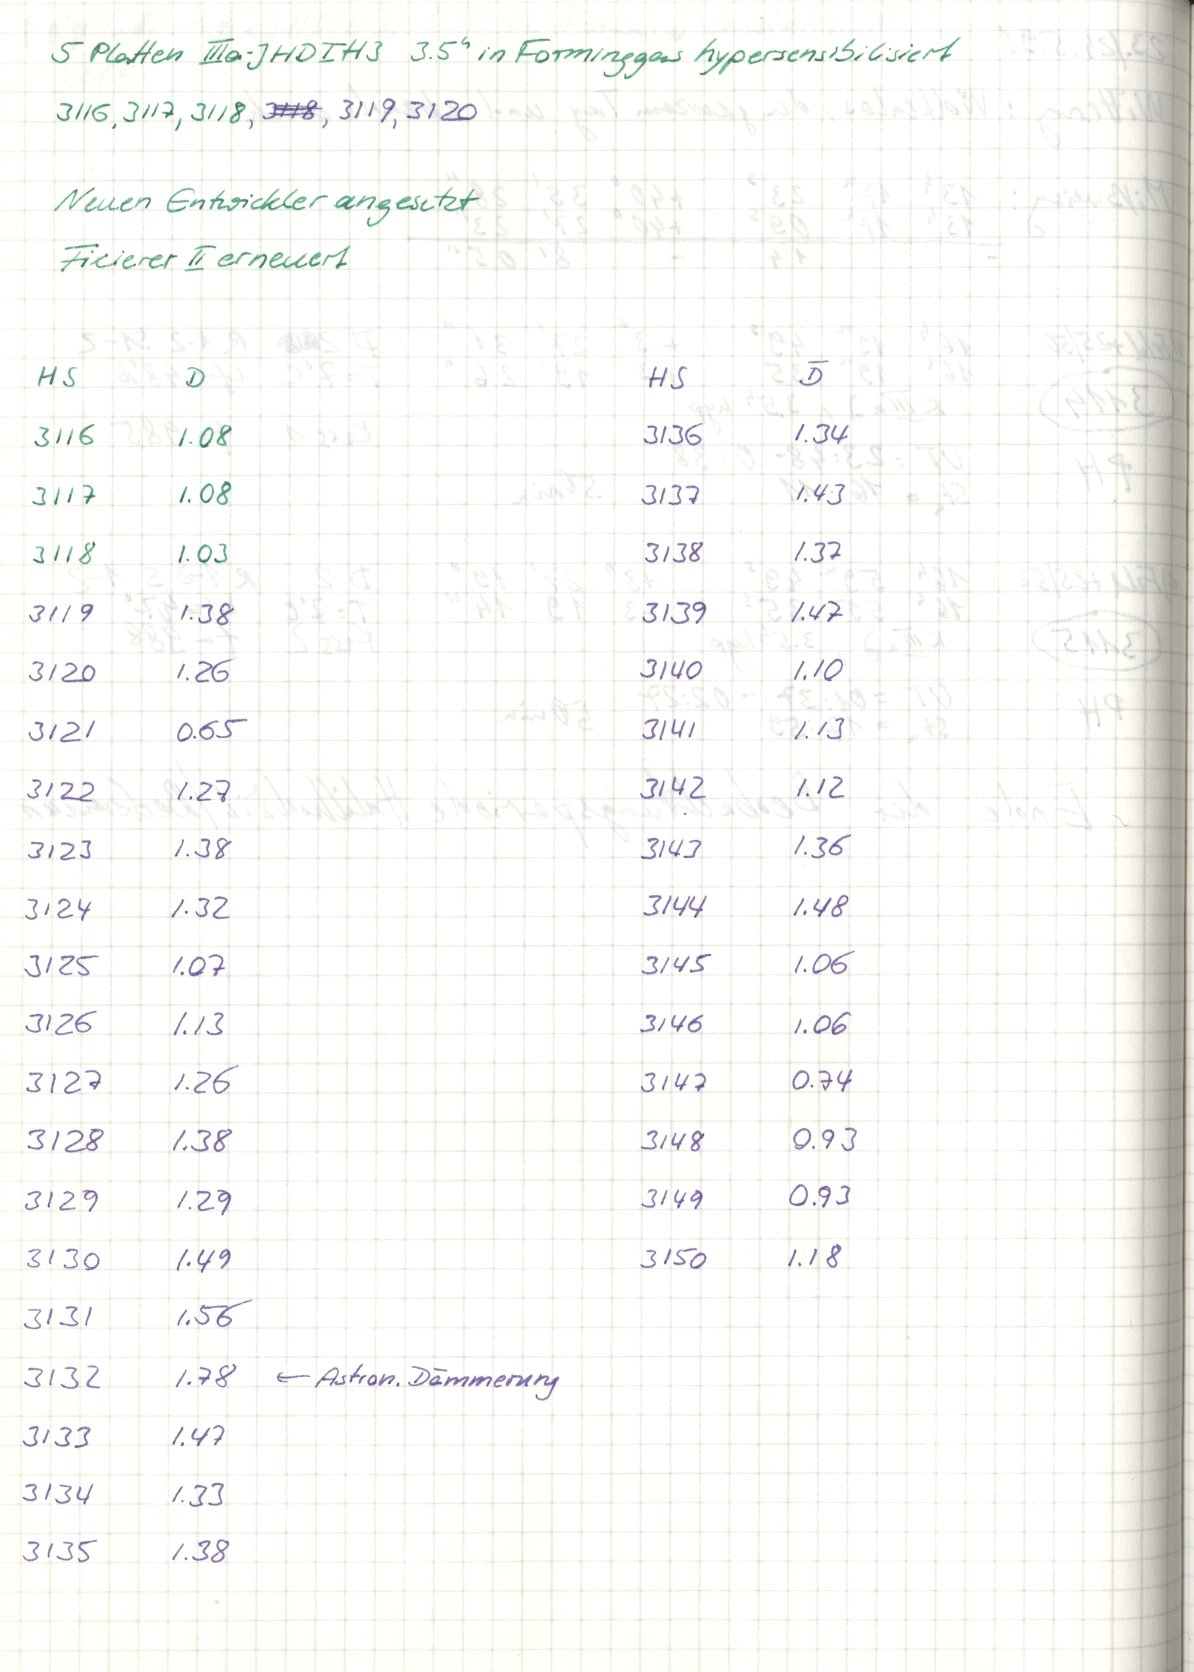 5 Platten IIIa-J HDIH3 3.5ʰ in Forminggas hypersensibilisiert
3116, 3117, 3118, 3118, 3119, 3120
Neuen Entwickler angesetzt
Fixierer II erneuert
HS D HS D
3116 1.08 3136 1.34
3117 1.08 3137 1.43
3118 1.03 3138 1.37
3119 1.38 3139 1.47
3120 1.26 3140 1.10
3121 0.65 3141 1.13
3122 1.27 3142 1.12
3123 1.38 3143 1.36
3124 1.32 3144 1.48
3125 1.07 3145 1.06
3126 1.13 3146 1.06
3127 1.26 3147 0.74
3128 1.38 3148 0.93
3129 1.29 3149 0.93
3130 1.49 3150 1.18
3131 1.56
3132 1.78 ← Astron. Dämmerung
3133 1.47
3134 1.33
3135 1.38